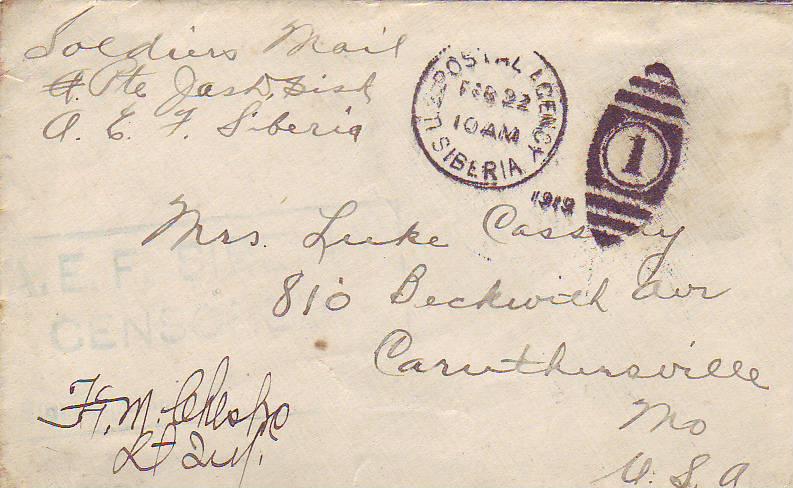 Soldiers Mail
Pte Jas D.
A. E. F. Siberia
U.S. POSTAL AGENCY
FEB 22
10 AM
SIBERIA
1919
1
Mrs. Luke Cassidy
810 Beckwith Ave
Caruthersville
Mo
U. S. A
A.E.F. SIB
CENSORED
F. M.
Lt Inf.